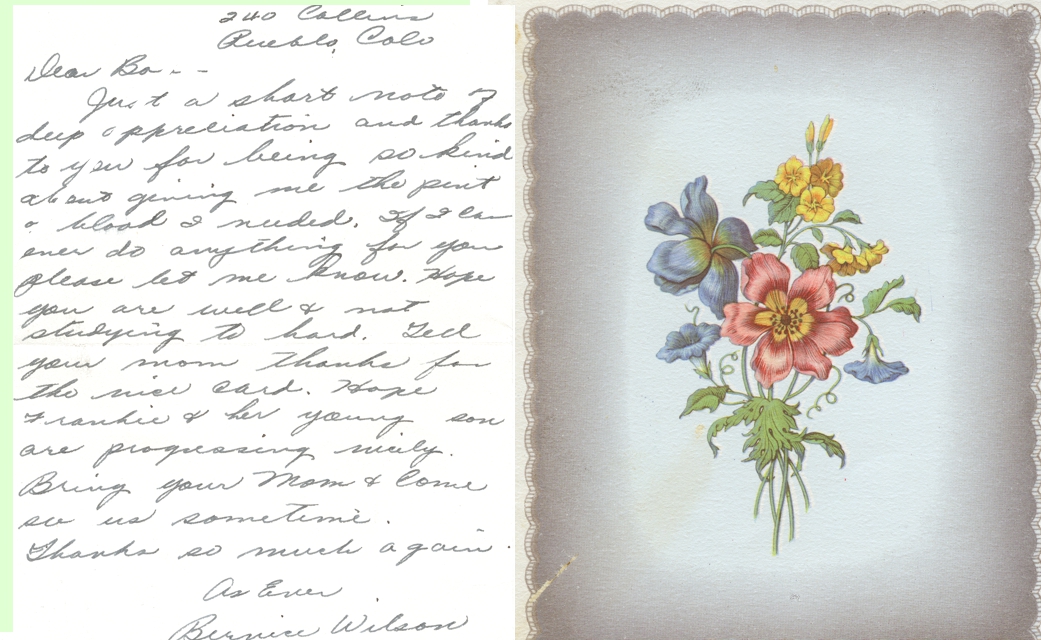 240 Collins
Pueblo, Colo
Dear Bo - -
Just a short note of
deep appreciation and thanks
to you for being so kind
about giving me the pint
o blood I needed. If I can
ever do anything for you
please let me know. Hope
you are well & not
studying to hard. Tell
your mom thanks for
the nice card. Hope
Frankie & her young son
are progressing nicily.
Bring your Mom & Come
see us sometime.
Thanks so much again.
As Ever
Bernice Wilson